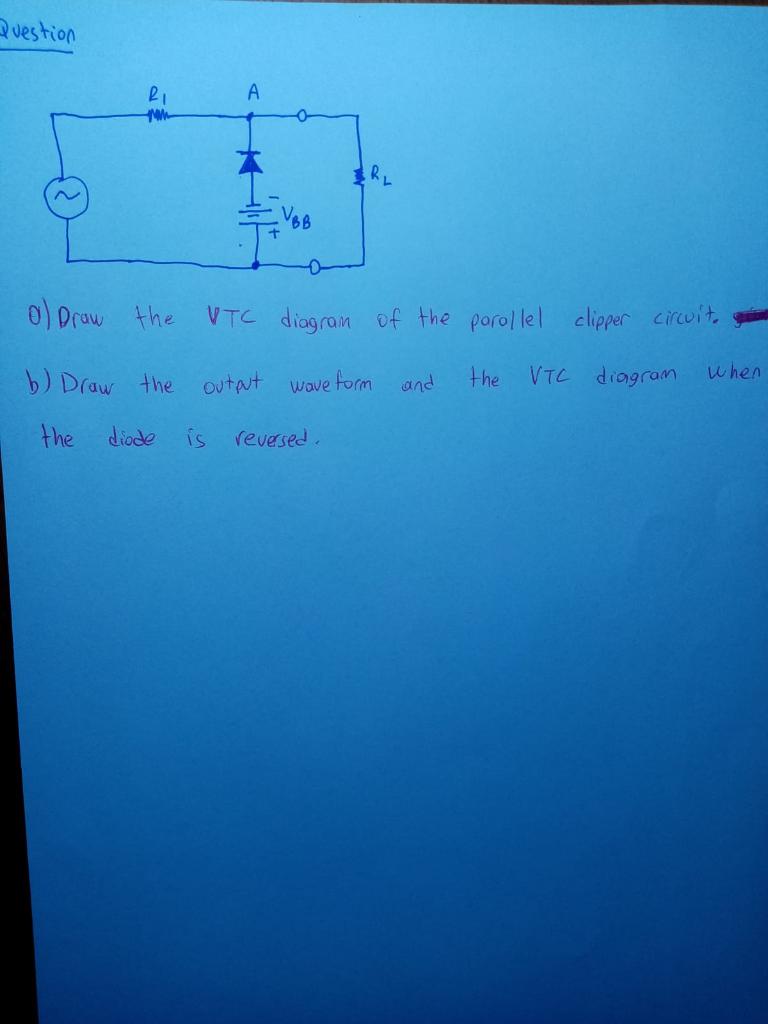 Question
R1
A
RL
-
VBB
+
a) Draw the VTC diagram of the parallel clipper circuit.
b) Draw the output waveform and the VTC diagram when
the diode is reversed.